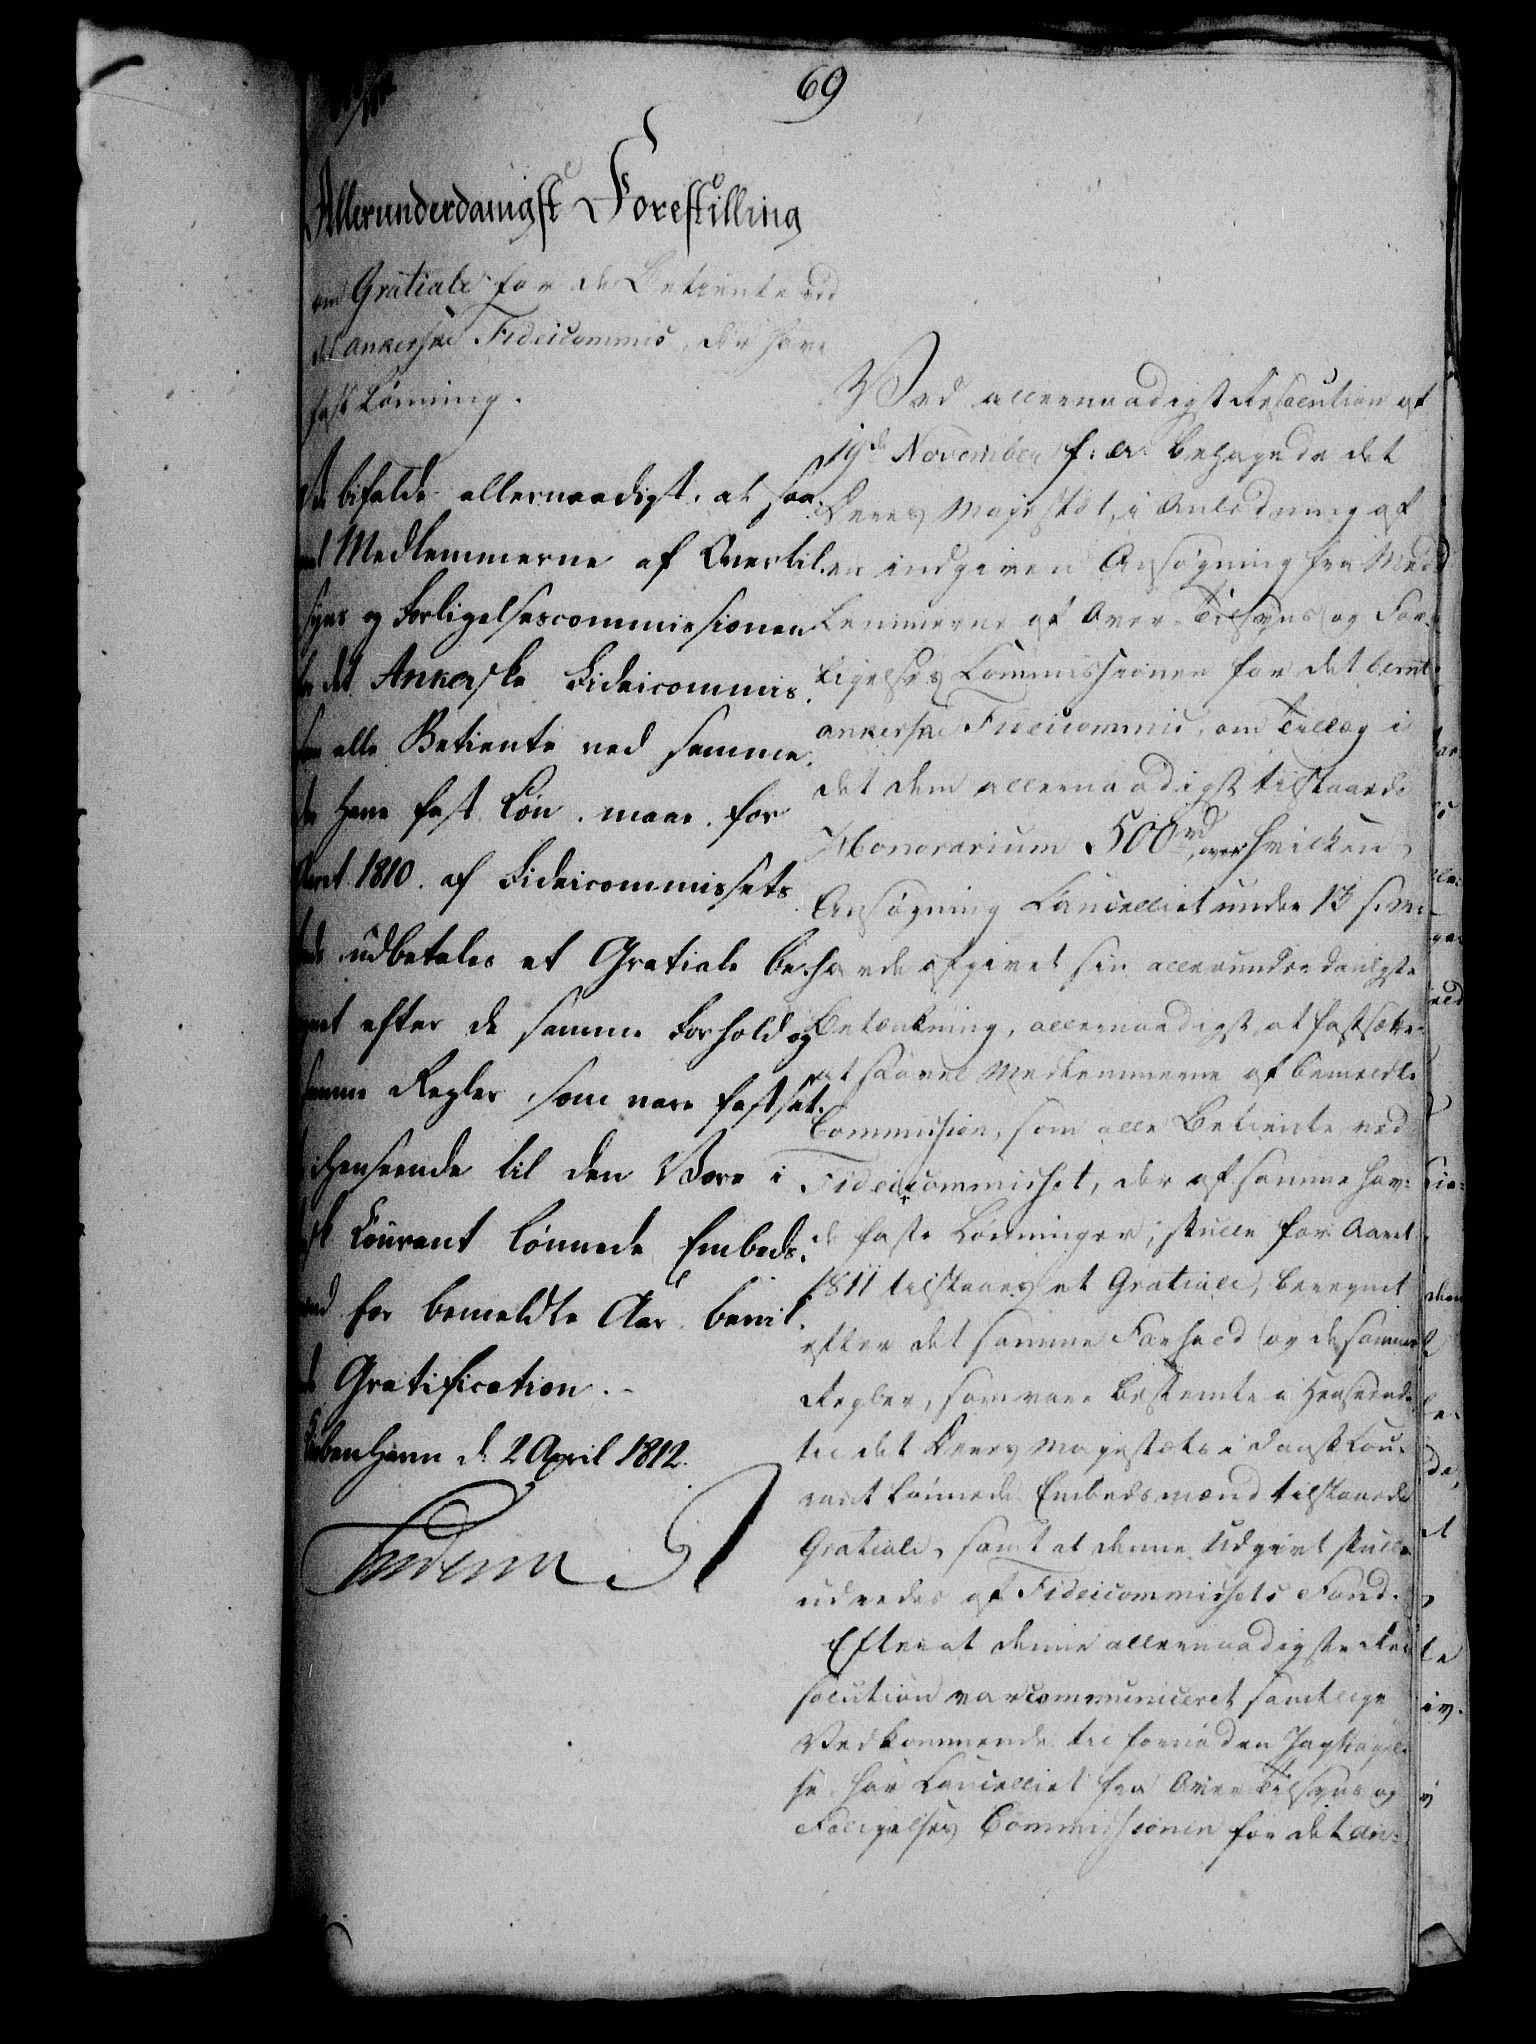 69
Allerunderdanigst Forestilling
om Gratiale for de Betiente ved
det Ankerske Fideicommis, der have
fast Lønning.
bifalde allernaadigst, at saa-
vel Medlemmerne af Overtil-
syns og Forligelsescommissionen
for det Ankerske Fideicommis,
som alle Betiente ved samme,
der have fast Løn, maae, for
Aaret 1810, af Fideicommissets
udbetales et Gratiale be-
regnet efter de samme Forhold og
samme Regler, som vare fastsat-
i Henseende til den Vore i
dansk Courant lønnede Embeds-
mænd for bemeldte Aar bevil-
Gratification.-
Kiøbenhavn d. 2 April 1812.
Frederik R
Ved allernaadigst Resolution af
19de November f: A: behagede det
Deres Majestæt, i Anledning af
en indgiven Ansøgning fra Med-
lemmerne af Over-Tilsyns og For-
ligelses Commissionen for det bernt
ankerske Fideicommis, om Tillæg i
det dem allernaadigst tilstaaede
Honorarium 500 rd, over hvilken
Ansøgning Cancelliet under 13 s. M:
havde afgivet sin allerunderdanigste
Betænkning, allernaadigst at fastsætte,
at saavel Medlemmerne af bemeldte
Commission, som alle Betiente ved
Fideicommisset, der af samme hav-
de faste Lønninger, skulle for Aaret
1811 tilstaaes et Gratiale, beregnet
efter det samme Forhold og de samme
Regler, som vare bestemte i Henseende
til det Deres Majestæts i dansk Cou-
rant lønnede Embedsmænd tilstaaede
Gratiale, samt at denne Udgivt skulle
udredes af Fideicommissets Fond.
Efterat denne allernaadigste Re-
solution var communiceret samtlige
Vedkommende til fornøden Iagttagel-
se, har Cancelliet fra Over Tilsyns og
Foligelses Commissionen for det An-